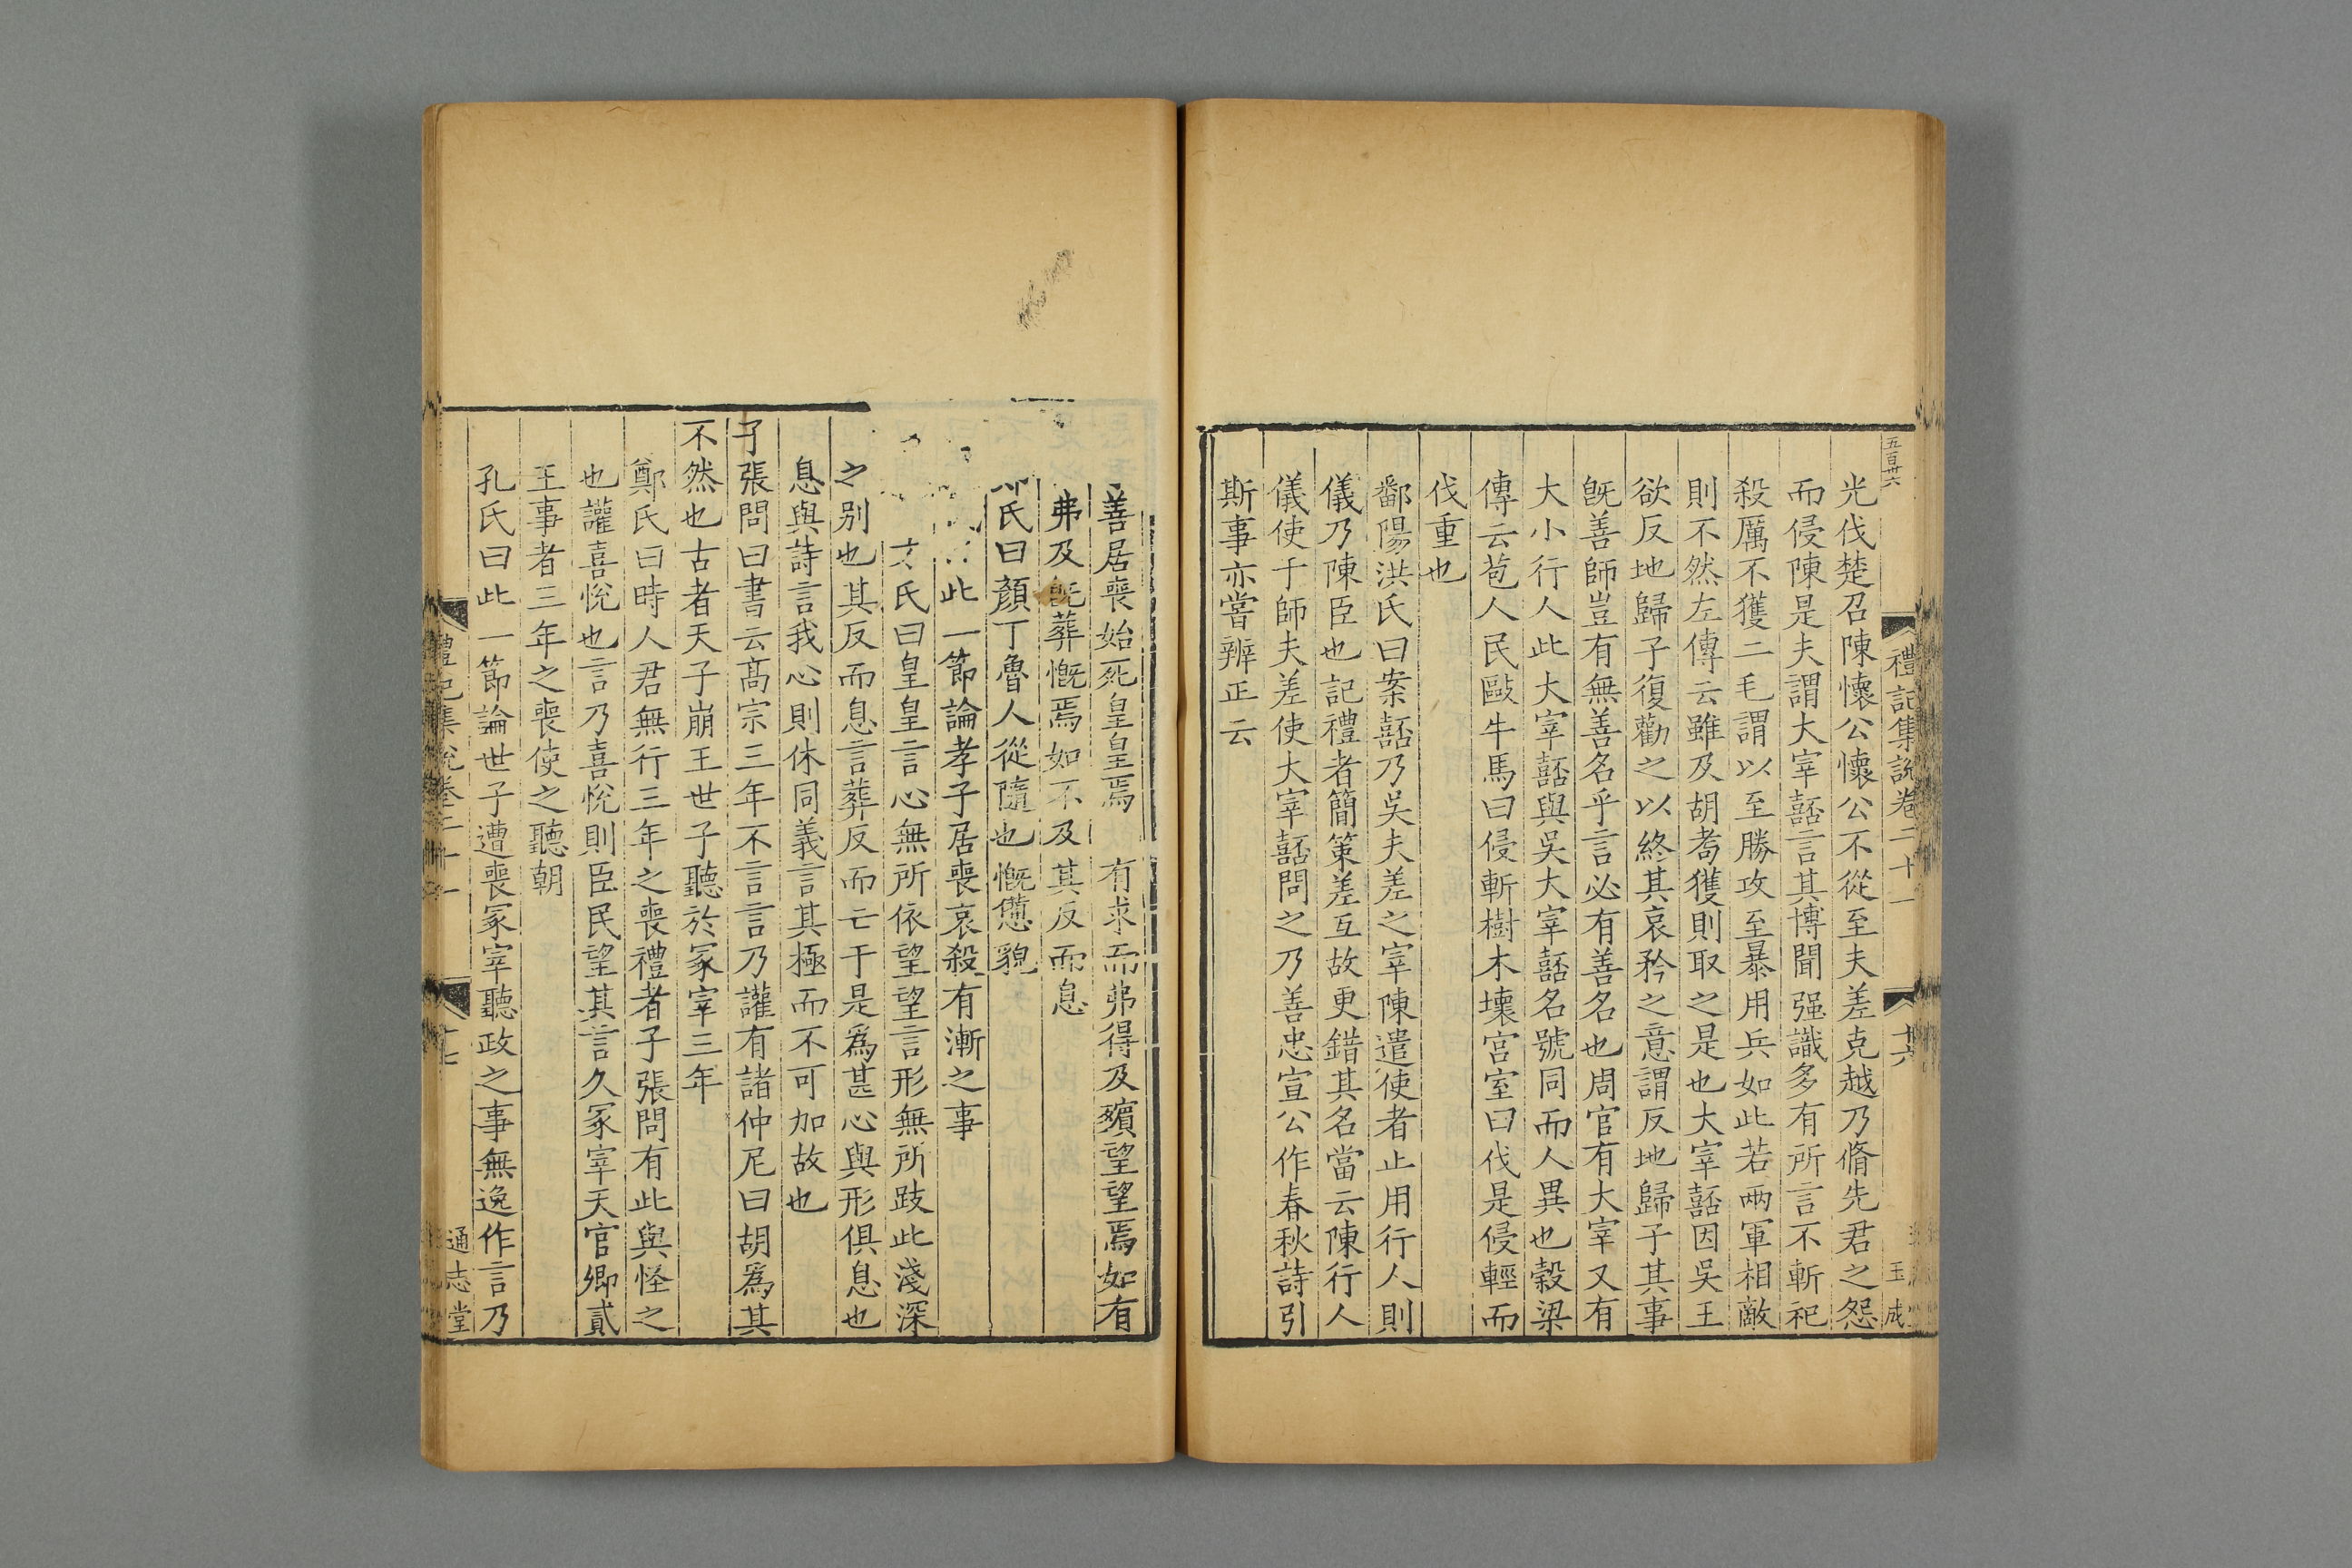 五百卅六
禮記集說卷二十一
十六
玉成
光伐楚召陳懷公懷公不從至夫差克越乃脩先君之怨
而侵陳是夫謂大宰嚭言其博聞强識多有所言不斬祀
殺厲不獲二毛謂以至勝攻至暴用兵如此若兩軍相敵
則不然左傳云雖及胡耇獲則取之是也大宰嚭因吳王
欲反地歸子復勸之以終其哀矜之意謂反地歸子其事
旣善師豈有無善名乎言必有善名也周官有大宰又有
大小行人此大宰嚭與吳大宰嚭名號同而人異也穀梁
傳云苞人民毆牛馬曰侵斬樹木壞宮室曰伐是侵輕而
伐重也
鄱陽洪氏曰案嚭乃吳夫差之宰陳遣使者止用行人則
儀乃陳臣也記禮者簡策差互故更錯其名當云陳行人
儀使于師夫差使大宰嚭問之乃善忠宣公作春秋詩引
斯事亦嘗辨正云
善居喪始死皇皇焉 有求而弗得及殯望望焉如有
弗及旣葬慨焉如不及其反而息
氏曰顏丁魯人從隨也慨憊貌
此一節論孝子居喪哀殺有漸之事
方氏曰皇皇言心無所依望望言形無所跂此淺深
之别也其反而息言葬反而亡于是爲甚心與形俱息也
息與詩言我心則休同義言其極而不可加故也
子張問曰書云高宗三年不言言乃讙有諸仲尼曰胡爲其
不然也古者天子崩王世子聽於冢宰三年
鄭氏曰時人君無行三年之喪禮者子張問有此與怪之
也讙喜悅也言乃喜悅則臣民望其言久冢宰天官卿貳
王事者三年之喪使之聽朝
孔氏曰此一節論世子遭喪冢宰聽政之事無逸作言乃
禮記集說卷二十一
十七
通志堂